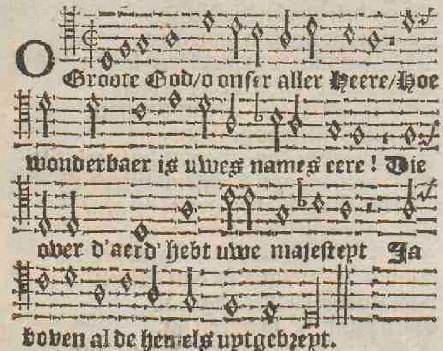 O Groote God/o onser aller Heere/Hoe
wonderbaer is uwes names eere! Die
over d'aerd' hebt uwe majesteyt Ja
boven al de hemels uytgebreyt.